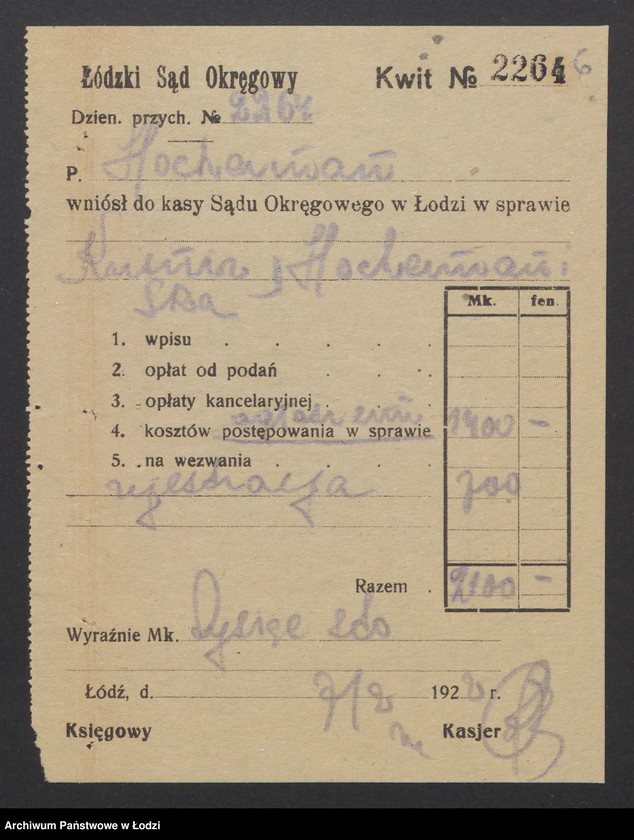 Łódzki Sąd Okręgowy
Kwit № 2264 6
Dzien. przych. № 2264
P. Hochermann
wniósł do kasy Sądu Okręgowego w Łodzi w sprawie
Hochermann i
Ska
Mk. fen.
1. wpisu
2. opłat od podań
3. opłaty kancelaryjnej
ogłoszenie
4. kosztów postępowania w sprawie 1400 —
5. na wezwania
rejestracja 700
Razem 2100 —
Wyraźnie Mk. sto
Łódź, d. 7/2 1922 r.
Księgowy Kasjer
Archiwum Państwowe w Łodzi